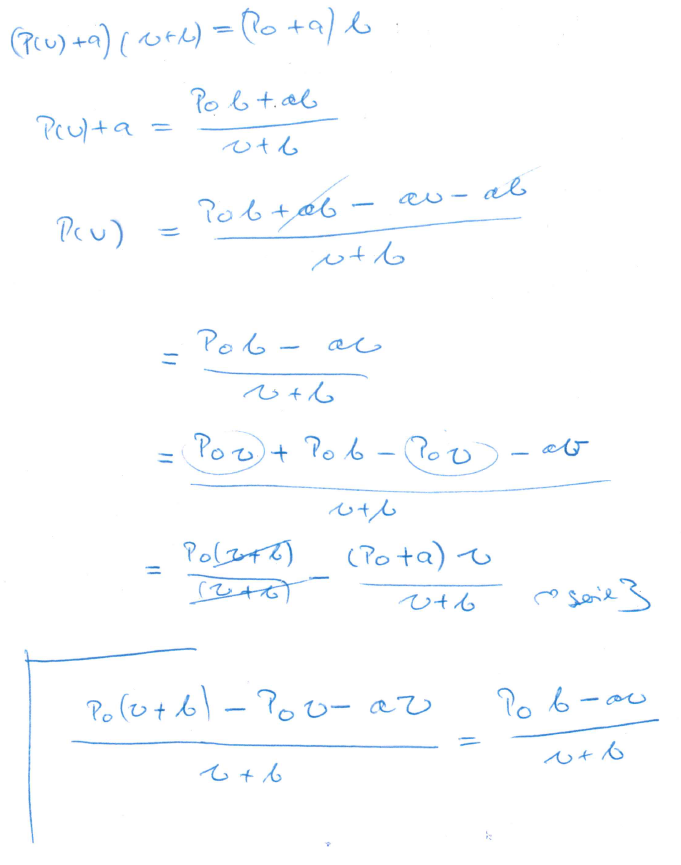 (P(v)+a)(v+b) = (P₀+a)b
P(v)+a = (P₀b+ab)/(v+b)
P(v) = (P₀b+ab−av−ab)/(v+b)
= (P₀b−av)/(v+b)
= (P₀v+P₀b−P₀v−av)/(v+b)
= P₀(v+b)/(v+b) − (P₀+a)v/(v+b) ~ série 3
(P₀(v+b)−P₀v−av)/(v+b) = (P₀b−av)/(v+b)